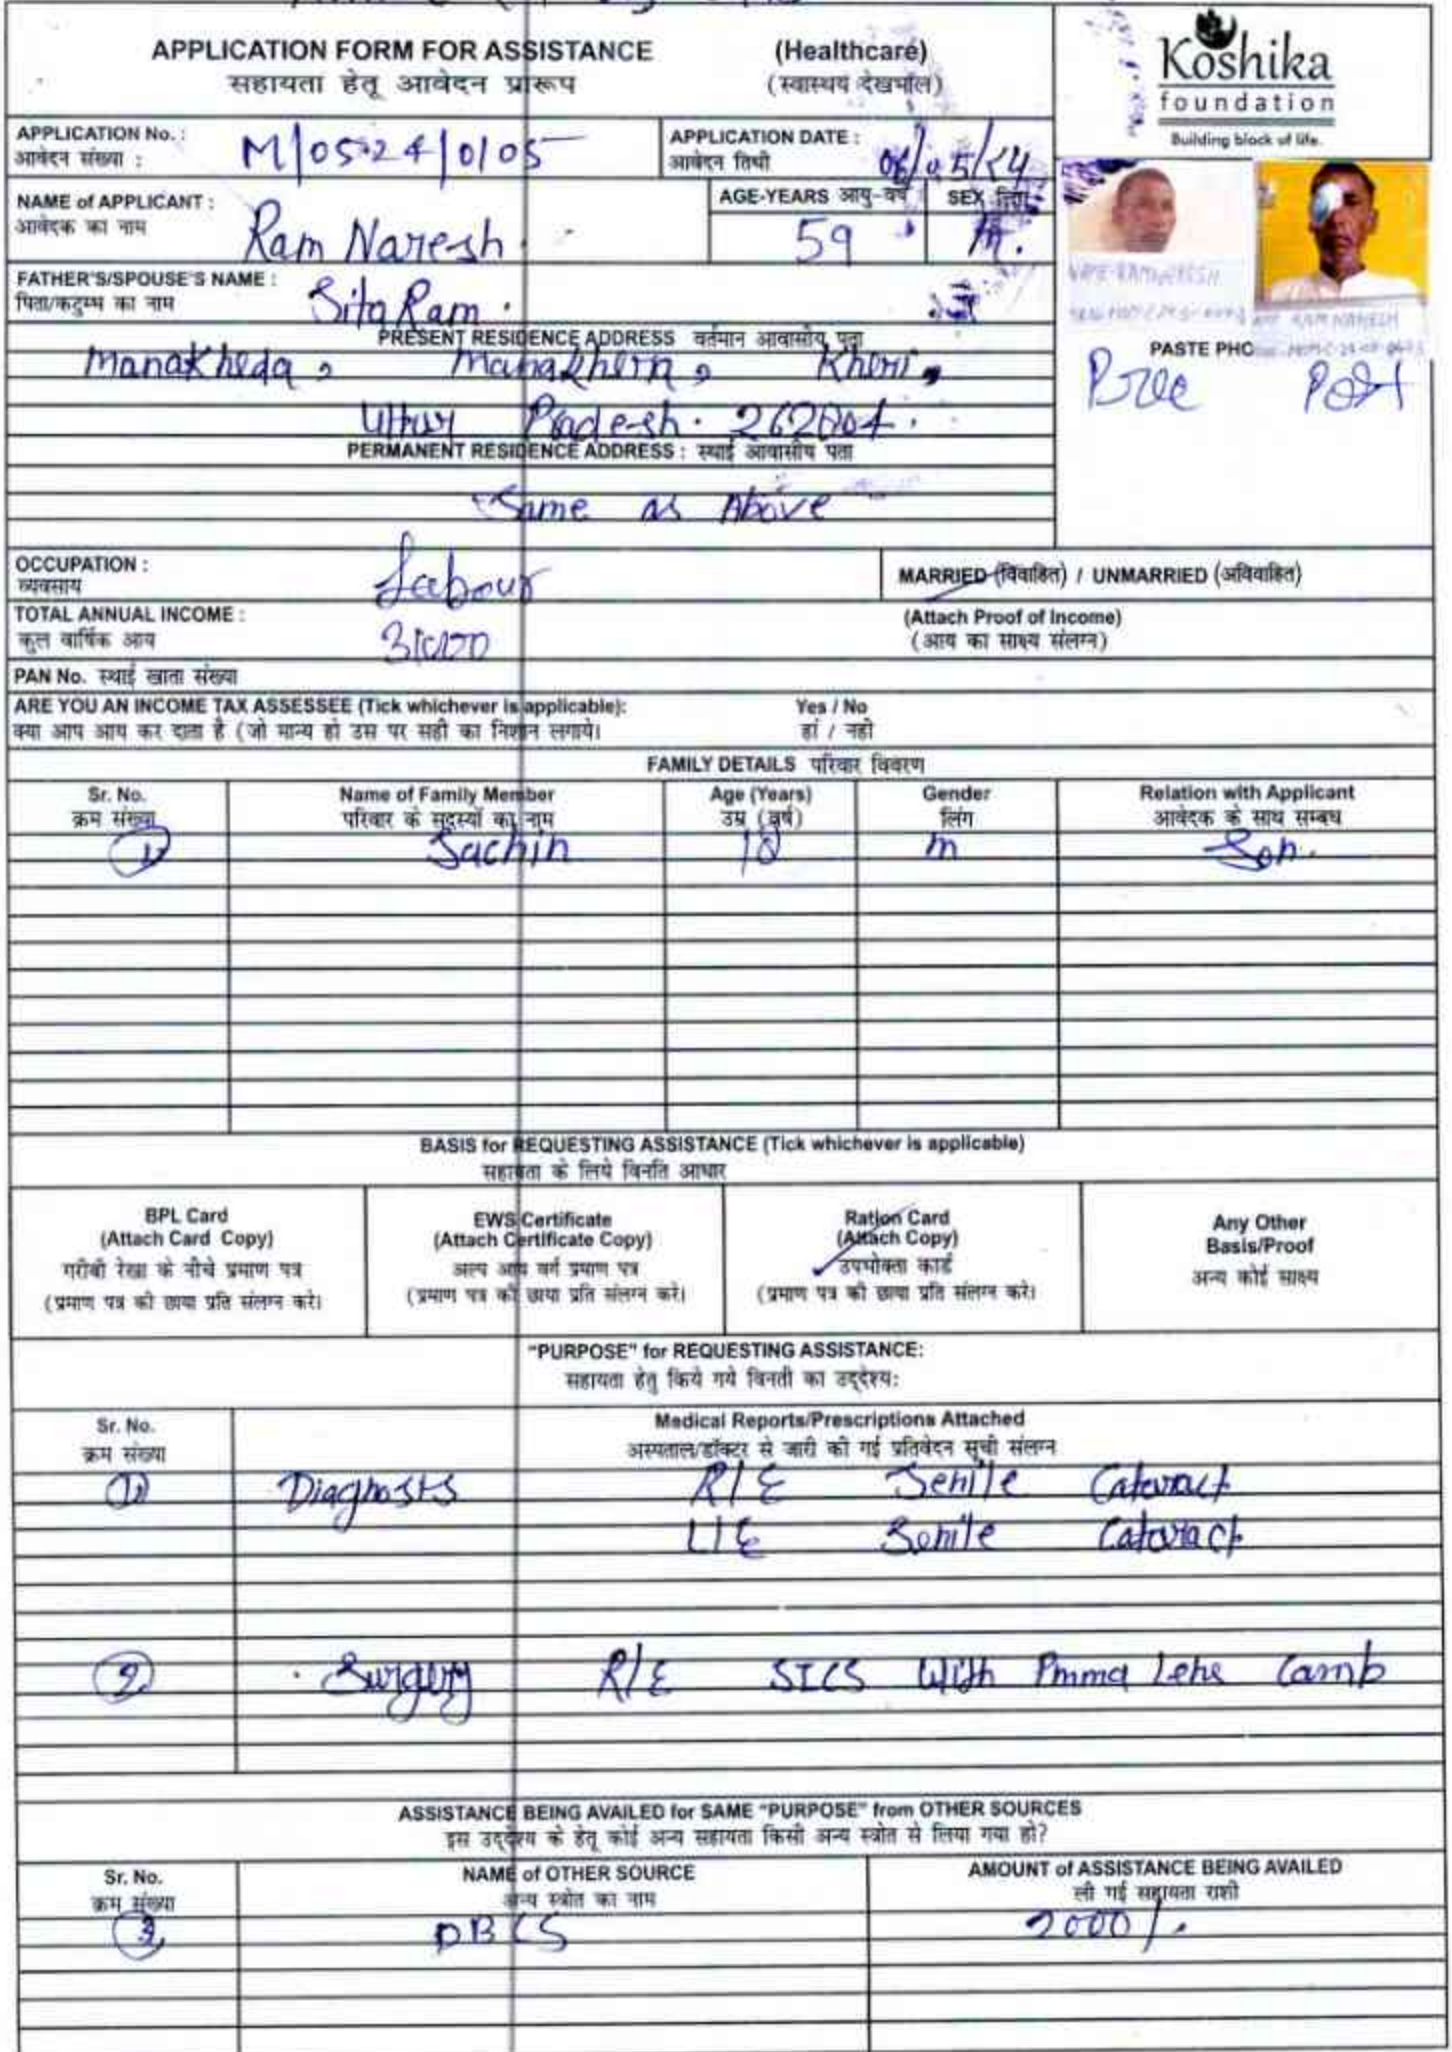 APPLICATION FORM FOR ASSISTANCE (Healthcare)
सहायता हेतू आवेदन प्रारूप (स्वास्थय देखभाल)
Koshika
foundation
Building block of life.
APPLICATION No. : M/0524/0105
आवेदन संख्या :
APPLICATION DATE : 06/05/24
आवेदन तिथी
NAME of APPLICANT : Ram Naresh
आवेदक का नाम
AGE-YEARS आयु-वर्ष 59
SEX लिंग M.
FATHER'S/SPOUSE'S NAME : Sita Ram
पिता/कटुम्ब का नाम
PRESENT RESIDENCE ADDRESS वर्तमान आवासीय पता
Manakheda, Kheri,
Pradesh.
PERMANENT RESIDENCE ADDRESS : स्थाई आवासीय पता
Same as Above
PASTE PHO
Post
OCCUPATION : Labour
व्यवसाय
MARRIED (विवाहित) / UNMARRIED (अविवाहित)
TOTAL ANNUAL INCOME :
कुल वार्षिक आय
(Attach Proof of Income)
(आय का साक्ष्य संलग्न)
PAN No. स्थाई खाता संख्या
ARE YOU AN INCOME TAX ASSESSEE (Tick whichever is applicable): Yes / No
क्या आप आय कर दाता है (जो मान्य हो उस पर सही का निशान लगाये। हां / नही
FAMILY DETAILS परिवार विवरण
Sr. No. Name of Family Member Age (Years) Gender Relation with Applicant
क्रम संख्या परिवार के सदस्यों का नाम उम्र (वर्ष) लिंग आवेदक के साथ सम्बध
1) Sachin 18 m Son.
BASIS for REQUESTING ASSISTANCE (Tick whichever is applicable)
सहायता के लिये विनति आधार
BPL Card
(Attach Card Copy)
गरीबी रेखा के नीचे प्रमाण पत्र
(प्रमाण पत्र की छाया प्रति संलग्न करे।
EWS Certificate
(Attach Certificate Copy)
अल्प आय वर्ग प्रमाण पत्र
(प्रमाण पत्र की छाया प्रति संलग्न करे।
Ration Card
(Attach Copy)
उपभोक्ता कार्ड
(प्रमाण पत्र की छाया प्रति संलग्न करे।
Any Other
Basis/Proof
अन्य कोई साक्ष्य
"PURPOSE" for REQUESTING ASSISTANCE:
सहायता हेतु किये गये विनती का उद्देश्य:
Sr. No. Medical Reports/Prescriptions Attached
क्रम संख्या अस्पताल/डॉक्टर से जारी की गई प्रतिवेदन सूची संलग्न
1) Diagnosis R/E Senile Cataract
L/E Senile Cataract
2) Surgery R/E SICS With Pmma Lens Camb
ASSISTANCE BEING AVAILED for SAME "PURPOSE" from OTHER SOURCES
इस उद्देश्य के हेतू कोई अन्य सहायता किसी अन्य स्त्रोत से लिया गया हो?
Sr. No. NAME of OTHER SOURCE AMOUNT of ASSISTANCE BEING AVAILED
क्रम संख्या अन्य स्त्रोत का नाम ली गई सहायता राशी
DBCS 2000/.